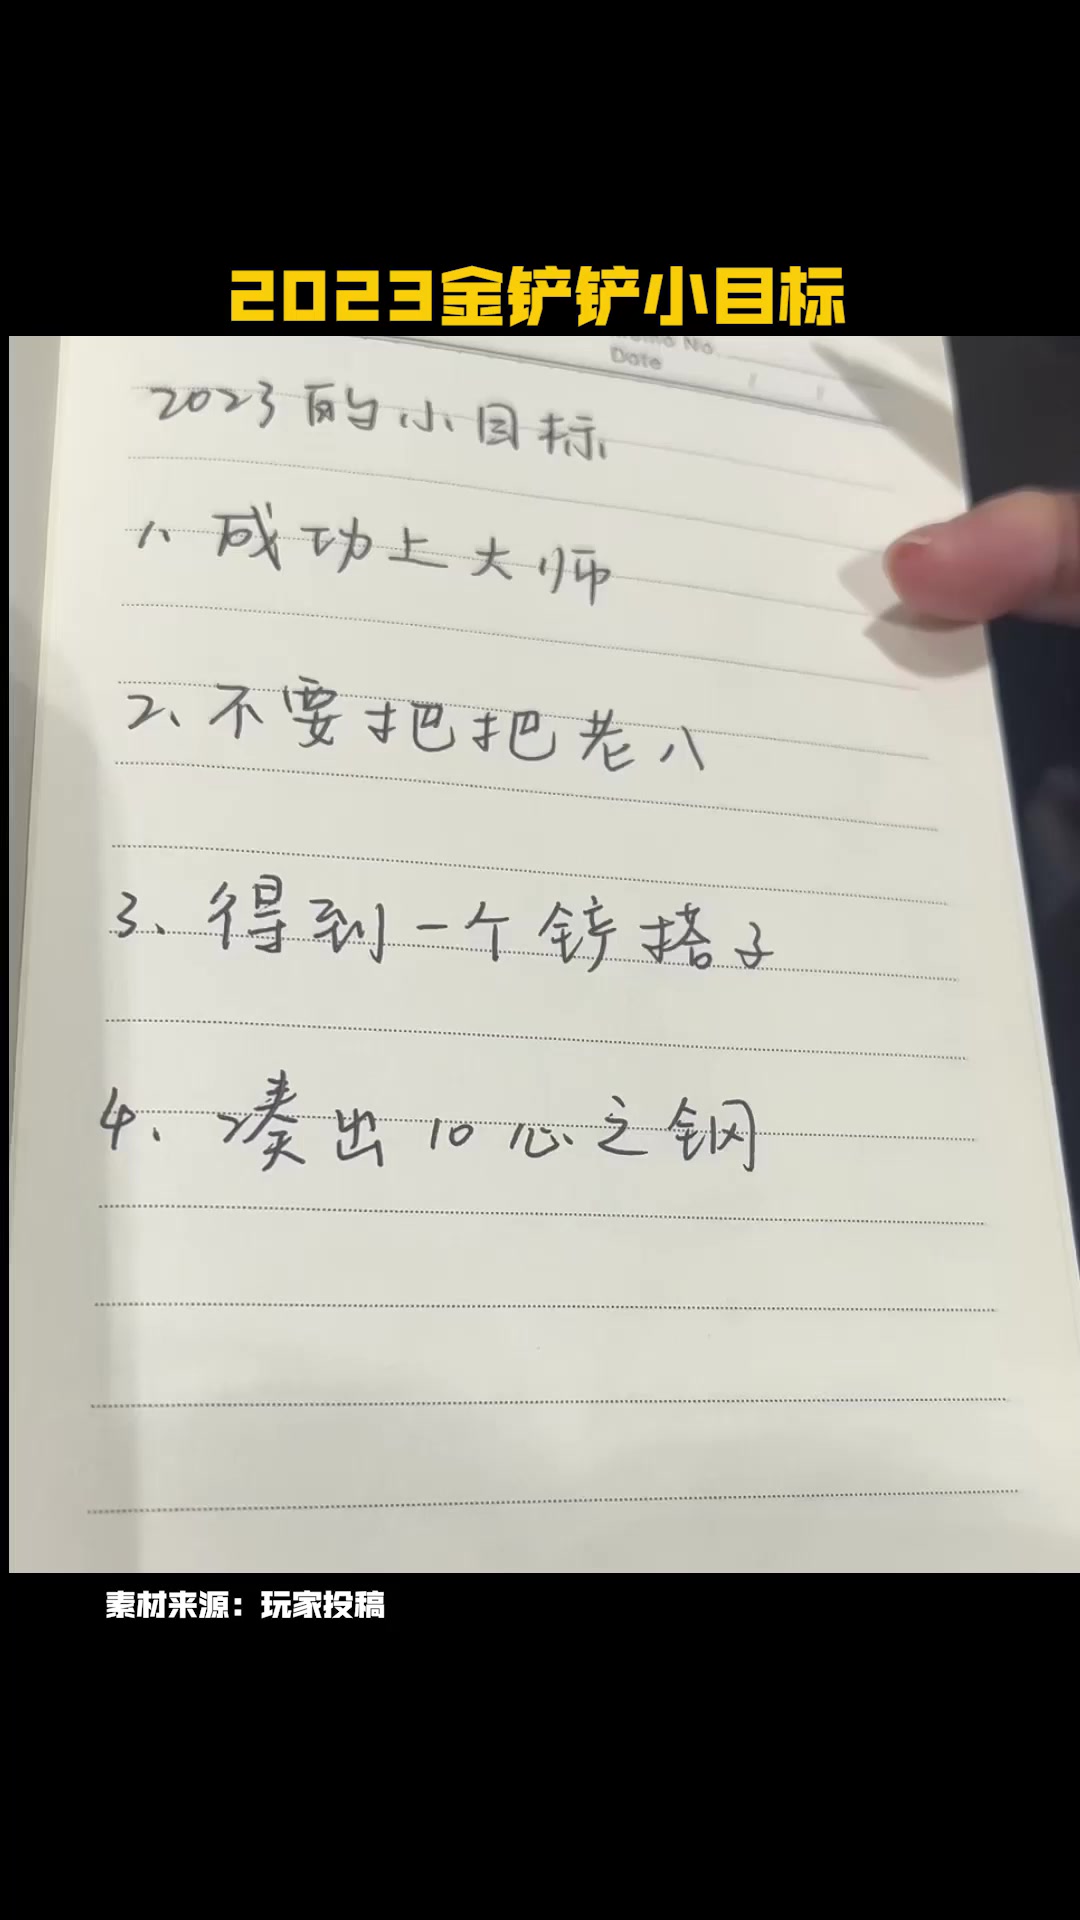 2023金铲铲小目标
Memo No.
Date
2023的小目标
1、成功上大师
2、不要把把老八
3、得到一个铲搭子
4、凑出10心之钢
素材来源：玩家投稿